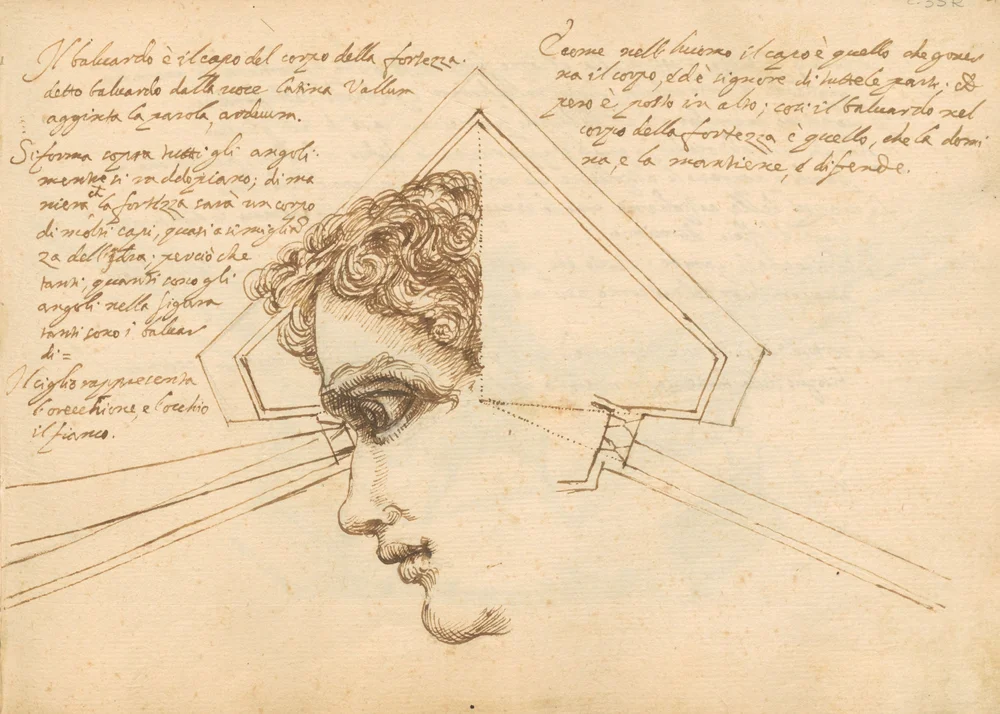 Il baluardo è il capo del corpo della fortezza.
detto baluardo dalla uoce latina Vallum
aggiñta la parola, arduum.
Si forma sopra tutti gli angoli.
mentre si raddoppiano; di ma
niera che la fortezza sarà un corpo
di molti capi, quasi a simiglian
za dell'Idra; perciò che
tanti, quanti sono gli
angoli nella figura
tanti sono i baluar
di =
Il ciglio rappresenta
l'orecchione, e l'occhio
il fianco.
E come nell'huomo il capo è quello che gouer
na il corpo, et è signore di tutte le parti. et
però è, posto in alto; così il baluardo nel
corpo della fortezza è quello, che la domi
na, e la mantiene, e difende.